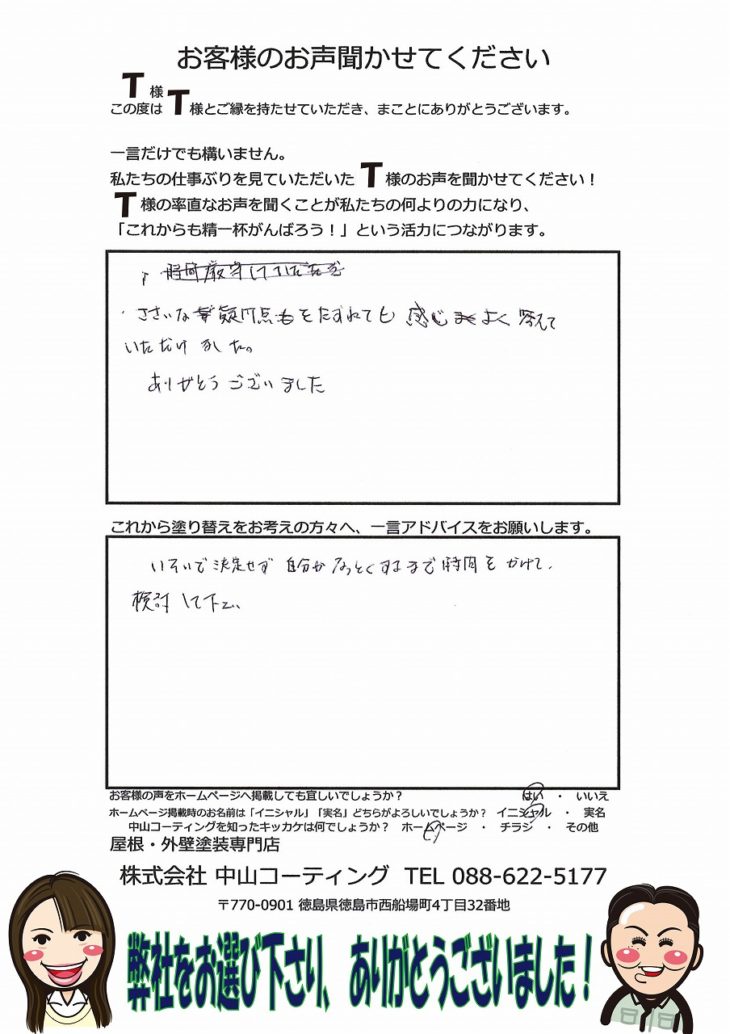 お客様のお声聞かせてください
T 様
この度は T 様とご縁を持たせていただき、まことにありがとうございます。
一言だけでも構いません。
私たちの仕事ぶりを見ていただいた T 様のお声を聞かせてください！
T 様の率直なお声を聞くことが私たちの何よりの力になり、
「これからも精一杯がんばろう！」という活力につながります。
時間厳守していただき
・ささいな疑問点をたずねても 感じよく 答えて
いただけました。
ありがとうございました
これから塗り替えをお考えの方々へ、一言アドバイスをお願いします。
いそいで決定せず 自分がなっとくするまで時間をかけて、
検討して下さい
お客様の声をホームページへ掲載しても宜しいでしょうか？ はい ・ いいえ
ホームページ掲載時のお名前は「イニシャル」「実名」どちらがよろしいでしょうか？ イニシャル ・ 実名
中山コーティングを知ったキッカケは何でしょうか？ ホームページ ・ チラシ ・ その他
屋根・外壁塗装専門店
株式会社 中山コーティング TEL 088-622-5177
〒770-0901 徳島県徳島市西船場町4丁目32番地
弊社をお選び下さり、ありがとうございました！